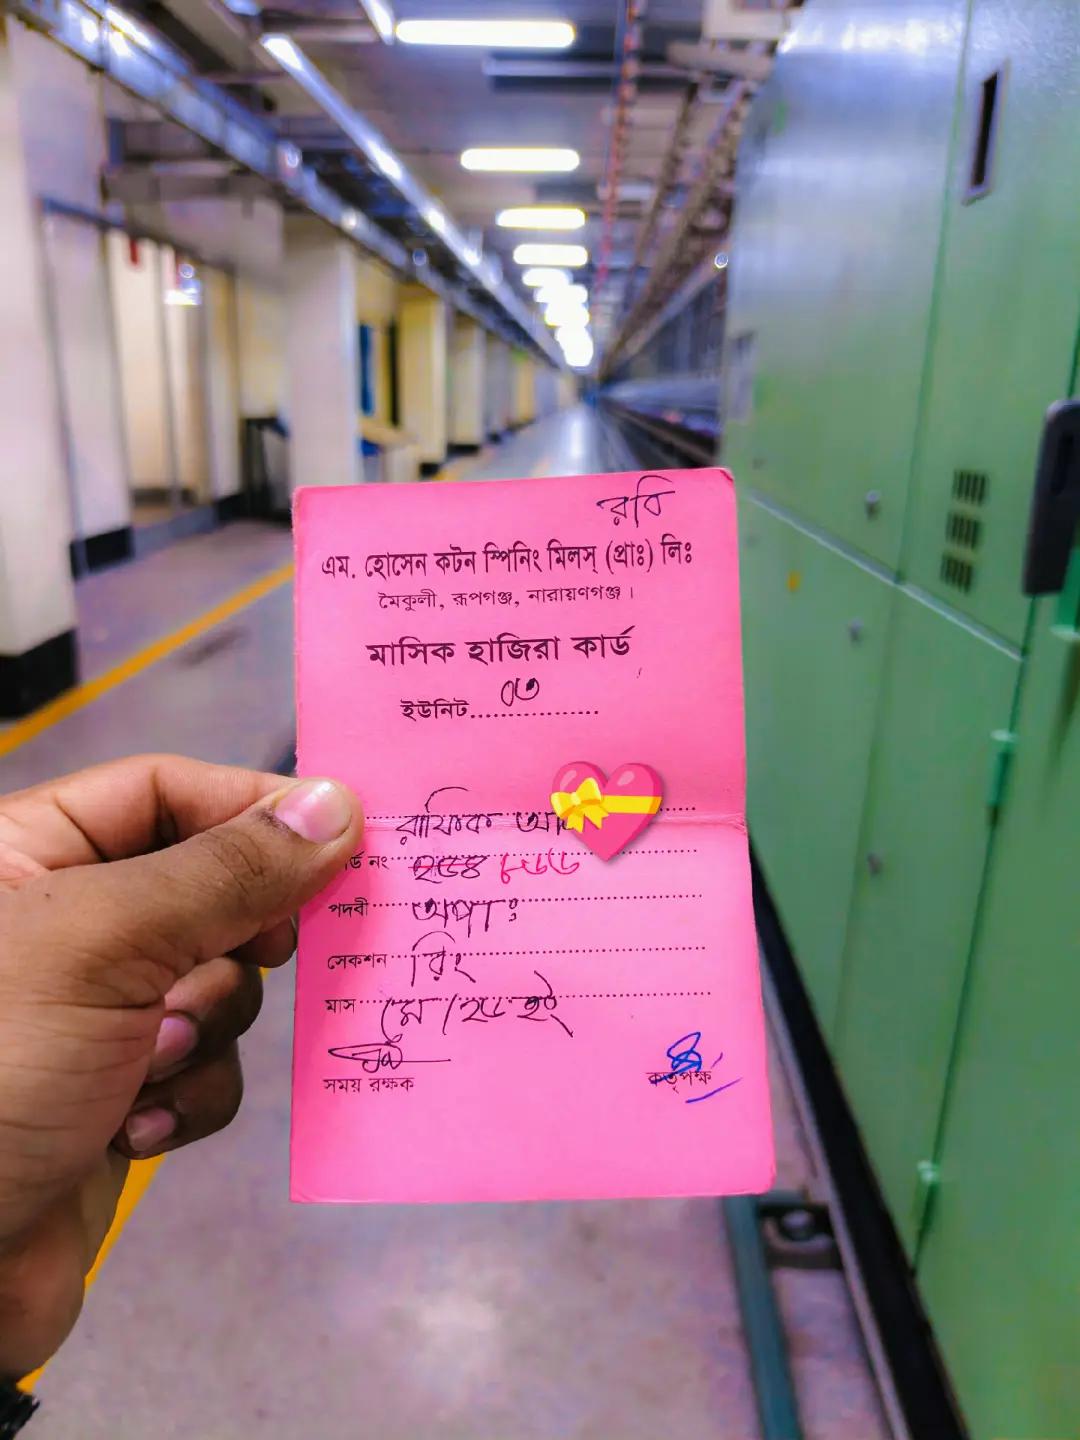 রবি
এম. হোসেন কটন স্পিনিং মিলস্ (প্রাঃ) লিঃ
মৈকুলী, রূপগঞ্জ, নারায়ণগঞ্জ।
মাসিক হাজিরা কার্ড
ইউনিট ০৩
রাফিক
র্ড নং
পদবী অপাঃ
সেকশন রিং
মাস মে
সময় রক্ষক
কর্তৃপক্ষ